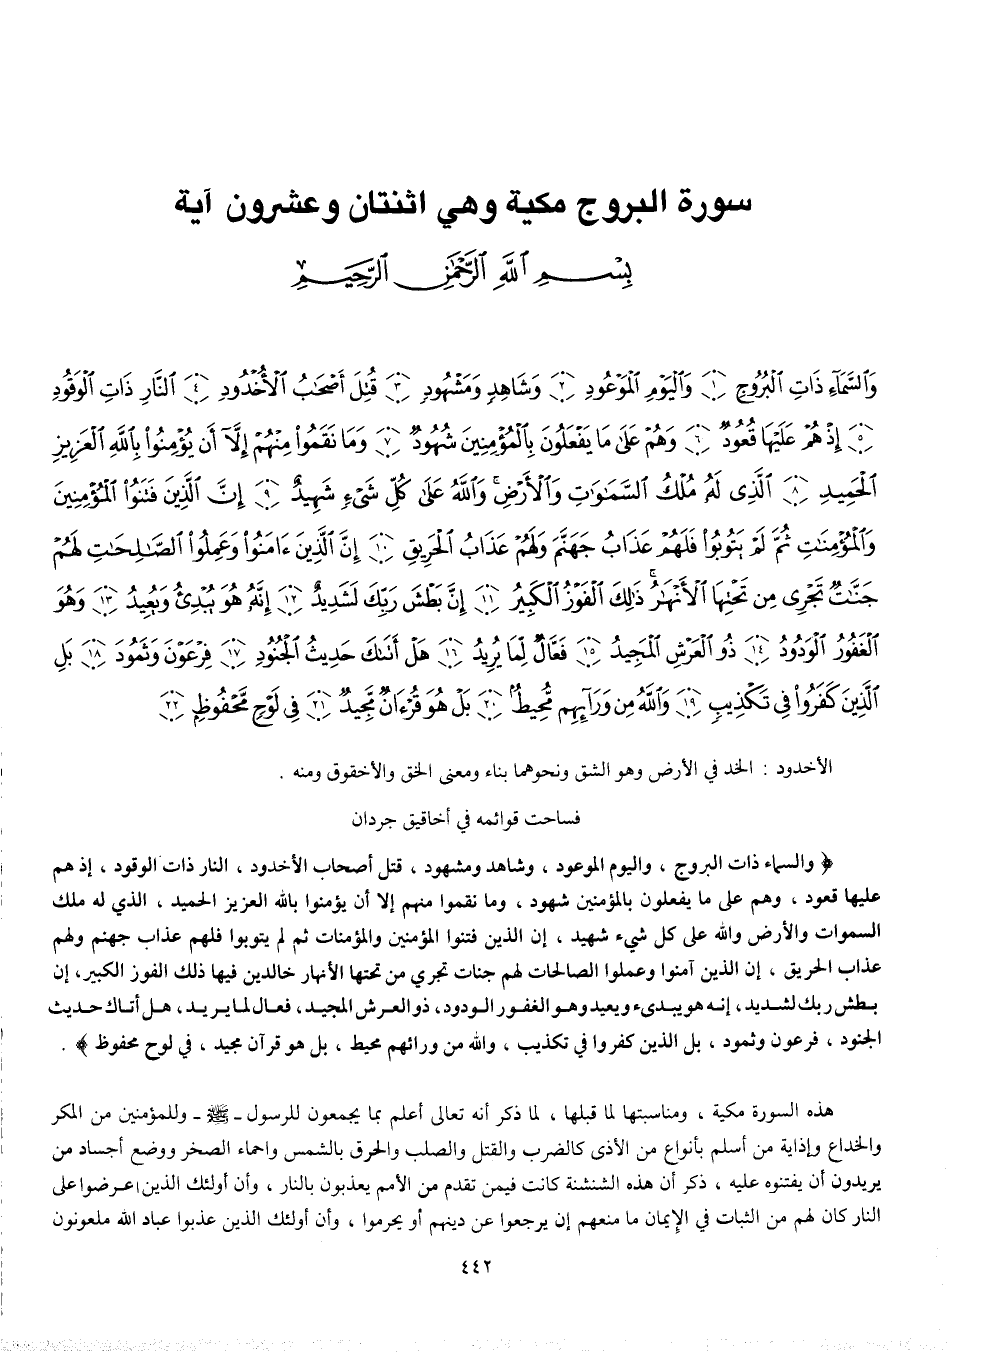 سورة البروج مكية وهي اثنتان وعشرون آية
بِسْمِ ٱللَّهِ ٱلرَّحْمَٰنِ ٱلرَّحِيمِ
وَٱلسَّمَآءِ ذَاتِ ٱلْبُرُوجِ ١ وَٱلْيَوْمِ ٱلْمَوْعُودِ ٢ وَشَاهِدٍ وَمَشْهُودٍ ٣ قُتِلَ أَصْحَٰبُ ٱلْأُخْدُودِ ٤ ٱلنَّارِ ذَاتِ ٱلْوَقُودِ
٥ إِذْ هُمْ عَلَيْهَا قُعُودٌ ٦ وَهُمْ عَلَىٰ مَا يَفْعَلُونَ بِٱلْمُؤْمِنِينَ شُهُودٌ ٧ وَمَا نَقَمُوا۟ مِنْهُمْ إِلَّآ أَن يُؤْمِنُوا۟ بِٱللَّهِ ٱلْعَزِيزِ
ٱلْحَمِيدِ ٨ ٱلَّذِى لَهُۥ مُلْكُ ٱلسَّمَٰوَٰتِ وَٱلْأَرْضِ ۚ وَٱللَّهُ عَلَىٰ كُلِّ شَىْءٍ شَهِيدٌ ٩ إِنَّ ٱلَّذِينَ فَتَنُوا۟ ٱلْمُؤْمِنِينَ
وَٱلْمُؤْمِنَٰتِ ثُمَّ لَمْ يَتُوبُوا۟ فَلَهُمْ عَذَابُ جَهَنَّمَ وَلَهُمْ عَذَابُ ٱلْحَرِيقِ ١٠ إِنَّ ٱلَّذِينَ ءَامَنُوا۟ وَعَمِلُوا۟ ٱلصَّٰلِحَٰتِ لَهُمْ
جَنَّٰتٌ تَجْرِى مِن تَحْتِهَا ٱلْأَنْهَٰرُ ۚ ذَٰلِكَ ٱلْفَوْزُ ٱلْكَبِيرُ ١١ إِنَّ بَطْشَ رَبِّكَ لَشَدِيدٌ ١٢ إِنَّهُۥ هُوَ يُبْدِئُ وَيُعِيدُ ١٣ وَهُوَ
ٱلْغَفُورُ ٱلْوَدُودُ ١٤ ذُو ٱلْعَرْشِ ٱلْمَجِيدُ ١٥ فَعَّالٌ لِّمَا يُرِيدُ ١٦ هَلْ أَتَىٰكَ حَدِيثُ ٱلْجُنُودِ ١٧ فِرْعَوْنَ وَثَمُودَ ١٨ بَلِ
ٱلَّذِينَ كَفَرُوا۟ فِى تَكْذِيبٍ ١٩ وَٱللَّهُ مِن وَرَآئِهِم مُّحِيطٌۢ ٢٠ بَلْ هُوَ قُرْءَانٌ مَّجِيدٌ ٢١ فِى لَوْحٍ مَّحْفُوظٍۭ ٢٢
الأخدود : الخد في الأرض وهو الشق ونحوهما بناء ومعنى الخق والأخقوق ومنه .
فساحت قوائمه في أخاقيق جردان
﴿ والسماء ذات البروج ، واليوم الموعود ، وشاهد ومشهود ، قتل أصحاب الأخدود ، النار ذات الوقود ، إذ هم
عليها قعود ، وهم على ما يفعلون بالمؤمنين شهود ، وما نقموا منهم إلا أن يؤمنوا بالله العزيز الحميد ، الذي له ملك
السموات والأرض والله على كل شيء شهيد ، إن الذين فتنوا المؤمنين والمؤمنات ثم لم يتوبوا فلهم عذاب جهنم ولهم
عذاب الحريق ، إن الذين آمنوا وعملوا الصالحات لهم جنات تجري من تحتها الأنهار خالدين فيها ذلك الفوز الكبير، إن
بطش ربك لشديد، إنه هو يبدىء ويعيد وهو الغفور الودود، ذو العرش المجيد، فعال لما يريد، هل أتاك حديث
الجنود ، فرعون وثمود ، بل الذين كفروا في تكذيب ، والله من ورائهم محيط ، بل هو قرآن مجيد ، في لوح محفوظ ﴾ .
هذه السورة مكية ، ومناسبتها لما قبلها ، لما ذكر أنه تعالى أعلم بما يجمعون للرسول ـ ﷺ ـ وللمؤمنين من المكر
والخداع وإذاية من أسلم بأنواع من الأذى كالضرب والقتل والصلب والحرق بالشمس واحماء الصخر ووضع أجساد من
يريدون أن يفتنوه عليه ، ذكر أن هذه الشنشنة كانت فيمن تقدم من الأمم يعذبون بالنار ، وأن أولئك الذين اعرضوا على
النار كان لهم من الثبات في الإيمان ما منعهم إن يرجعوا عن دينهم أو يحرموا ، وأن أولئك الذين عذبوا عباد الله ملعونون
٤٤٢